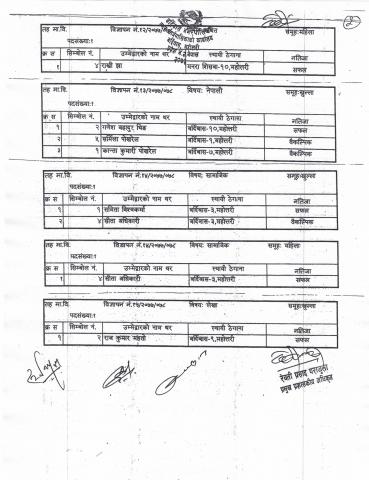 तह मा.वि. विज्ञापन नं.१२/२०७७/०७८ समुहःमहिला
पदसंख्याः१
क्र स सिम्बोल नं. उम्मेद्वारको नाम थर स्थायी ठेगाना नतिजा
१ ४ राखी झा १०,महोत्तरी सफल
तह मा.वि. विज्ञापन नं.१३/२०७७/०७८ विषयः नेपाली समुहःखुल्ला
पदसंख्याः१
क्र स सिम्बोल नं. उम्मेद्वारको नाम थर स्थायी ठेगाना नतिजा
१ २ गणेश बहादुर बर्दिबास-१०,महोत्तरी सफल
२ ५ सर्मिला पोखरेल बर्दिबास-३,महोत्तरी वैकल्पिक
३ १ कान्ता कुमारी पोखरेल बर्दिबास-७,महोत्तरी वैकल्पिक
तह मा.वि. विज्ञापन नं.१४/२०७७/०७८ विषयः सामाजिक समुहःखुल्ला
पदसंख्याः१
क्र स सिम्बोल नं. उम्मेद्वारको नाम थर स्थायी ठेगाना नतिजा
१ १ सबिता विश्वकर्मा बर्दिबास-३,महोत्तरी सफल
२ ४ सीता अधिकारी बर्दिबास-३,महोत्तरी वैकल्पिक
तह मा.वि. विज्ञापन नं.१५/२०७७/०७८ विषयः सामाजिक समुहः महिला
पदसंख्याः१
क्र स सिम्बोल नं. उम्मेद्वारको नाम थर स्थायी ठेगाना नतिजा
१ ४ सीता अधिकारी बर्दिबास-३,महोत्तरी सफल
तह मा.वि. विज्ञापन नं.१६/२०७७/०७८ विषयः लेखा समुहःखुल्ला
पदसंख्याः१
क्र स सिम्बोल नं. उम्मेद्वारको नाम थर स्थायी ठेगाना नतिजा
१ २ राज कुमार महतो बर्दिबास-९,महोत्तरी सफल
रेवती प्रसाद पराजुली
प्रमुख प्रशासकीय अधिकृत